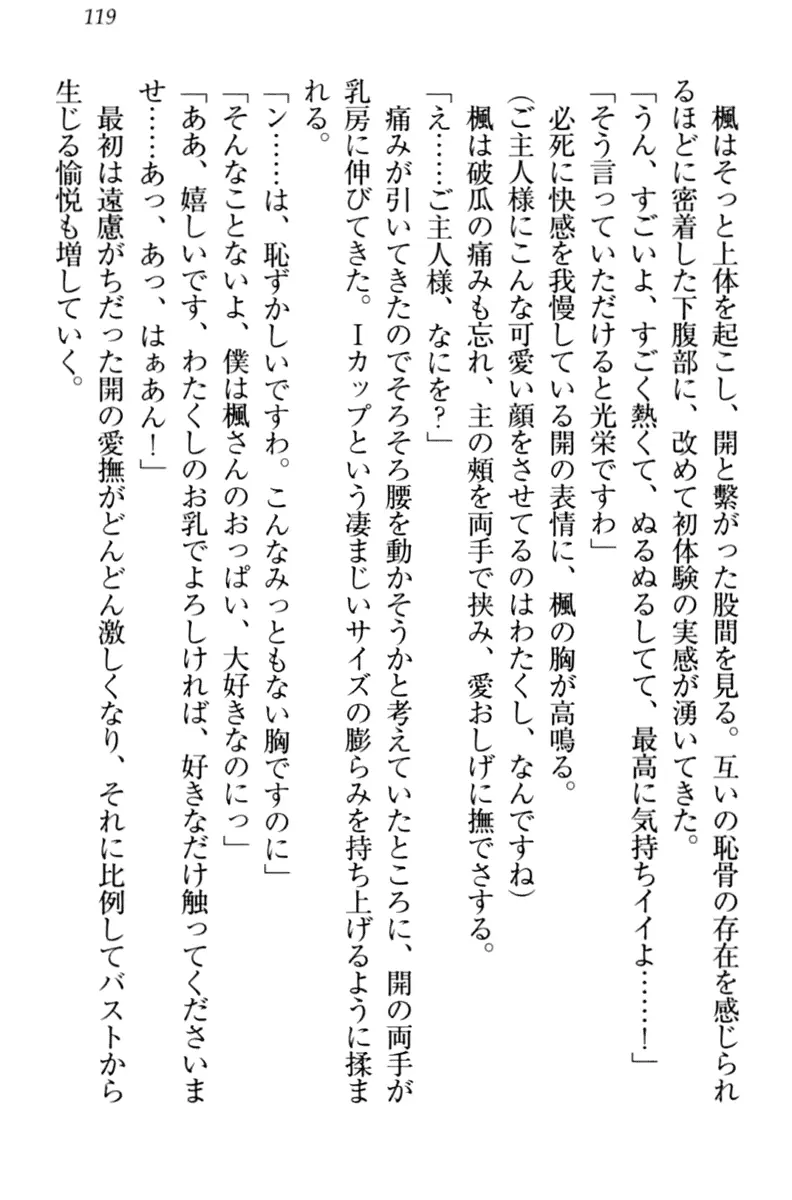 119
楓はそっと上体を起こし、開と繋がった股間を見る。互いの恥骨の存在を感じられ
るほどに密着した下腹部に、改めて初体験の実感が湧いてきた。
「うん、すごいよ、すごく熱くて、ぬるぬるしてて、最高に気持ちイイよ……！」
「そう言っていただけると光栄ですわ」
必死に快感を我慢している開の表情に、楓の胸が高鳴る。
(ご主人様にこんな可愛い顔をさせてるのはわたくし、なんですね)
楓は破瓜の痛みも忘れ、主の頬を両手で挟み、愛おしげに撫でさする。
「え……ご主人様、なにを？」
痛みが引いてきたのでそろそろ腰を動かそうかと考えていたところに、開の両手が
乳房に伸びてきた。Ｉカップという凄まじいサイズの膨らみを持ち上げるように揉ま
れる。
「ン……は、恥ずかしいですわ。こんなみっともない胸ですのに」
「そんなことないよ、僕は楓さんのおっぱい、大好きなのにっ」
「ああ、嬉しいです、わたくしのお乳でよろしければ、好きなだけ触ってくださいま
せ……あっ、あっ、はぁあん！」
最初は遠慮がちだった開の愛撫がどんどん激しくなり、それに比例してバストから
生じる愉悦も増していく。